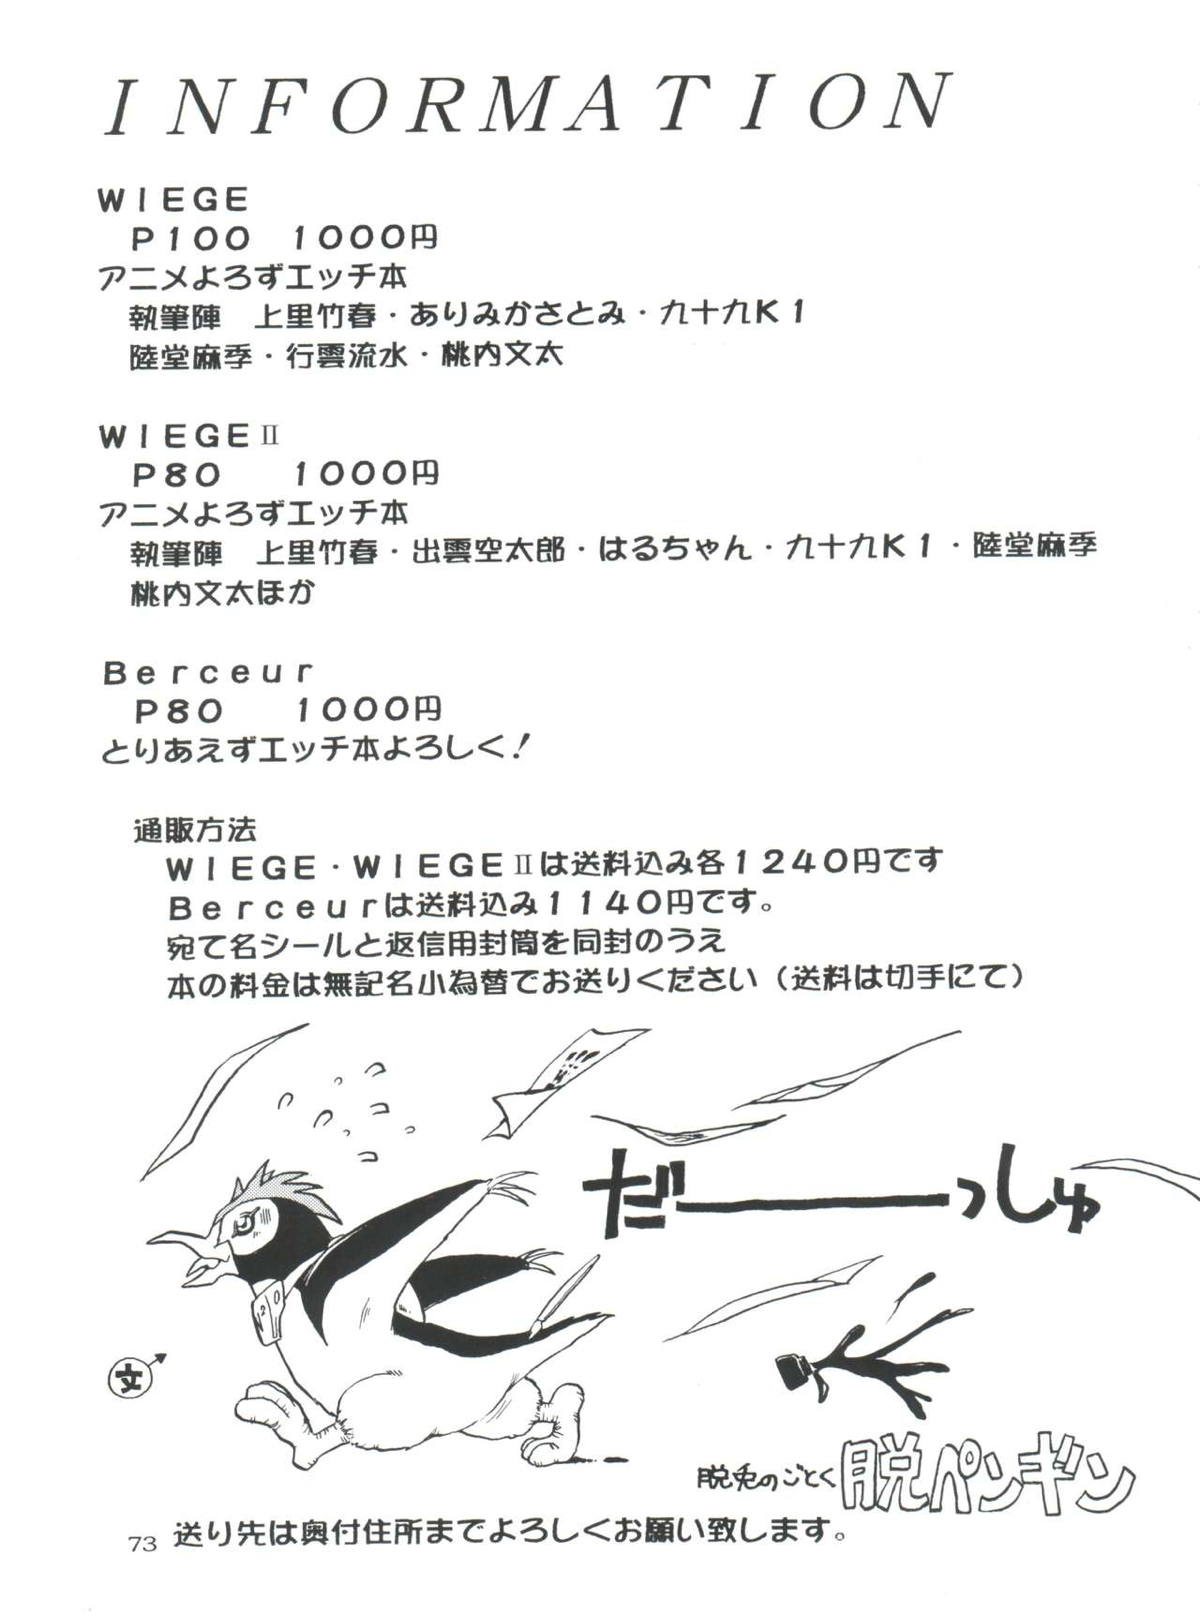 INFORMATION
WIEGE
P100 1000円
アニメよろずエッチ本
執筆陣 上里竹春・ありみかさとみ・九十九K1
陸堂麻季・行雲流水・桃内文太
WIEGEⅡ
P80 1000円
アニメよろずエッチ本
執筆陣 上里竹春・出雲空太郎・はるちゃん・九十九K1・陸堂麻季
桃内文太ほか
Berceur
P80 1000円
とりあえずエッチ本よろしく!
通販方法
WIEGE・WIEGEⅡは送料込み各1240円です
Berceurは送料込み1140円です。
宛て名シールと返信用封筒を同封のうえ
本の料金は無記名小為替でお送りください(送料は切手にて)
だーーーっしゅ
20
文
脱兎のごとく脱ペンギン
73 送り先は奥付住所までよろしくお願い致します。